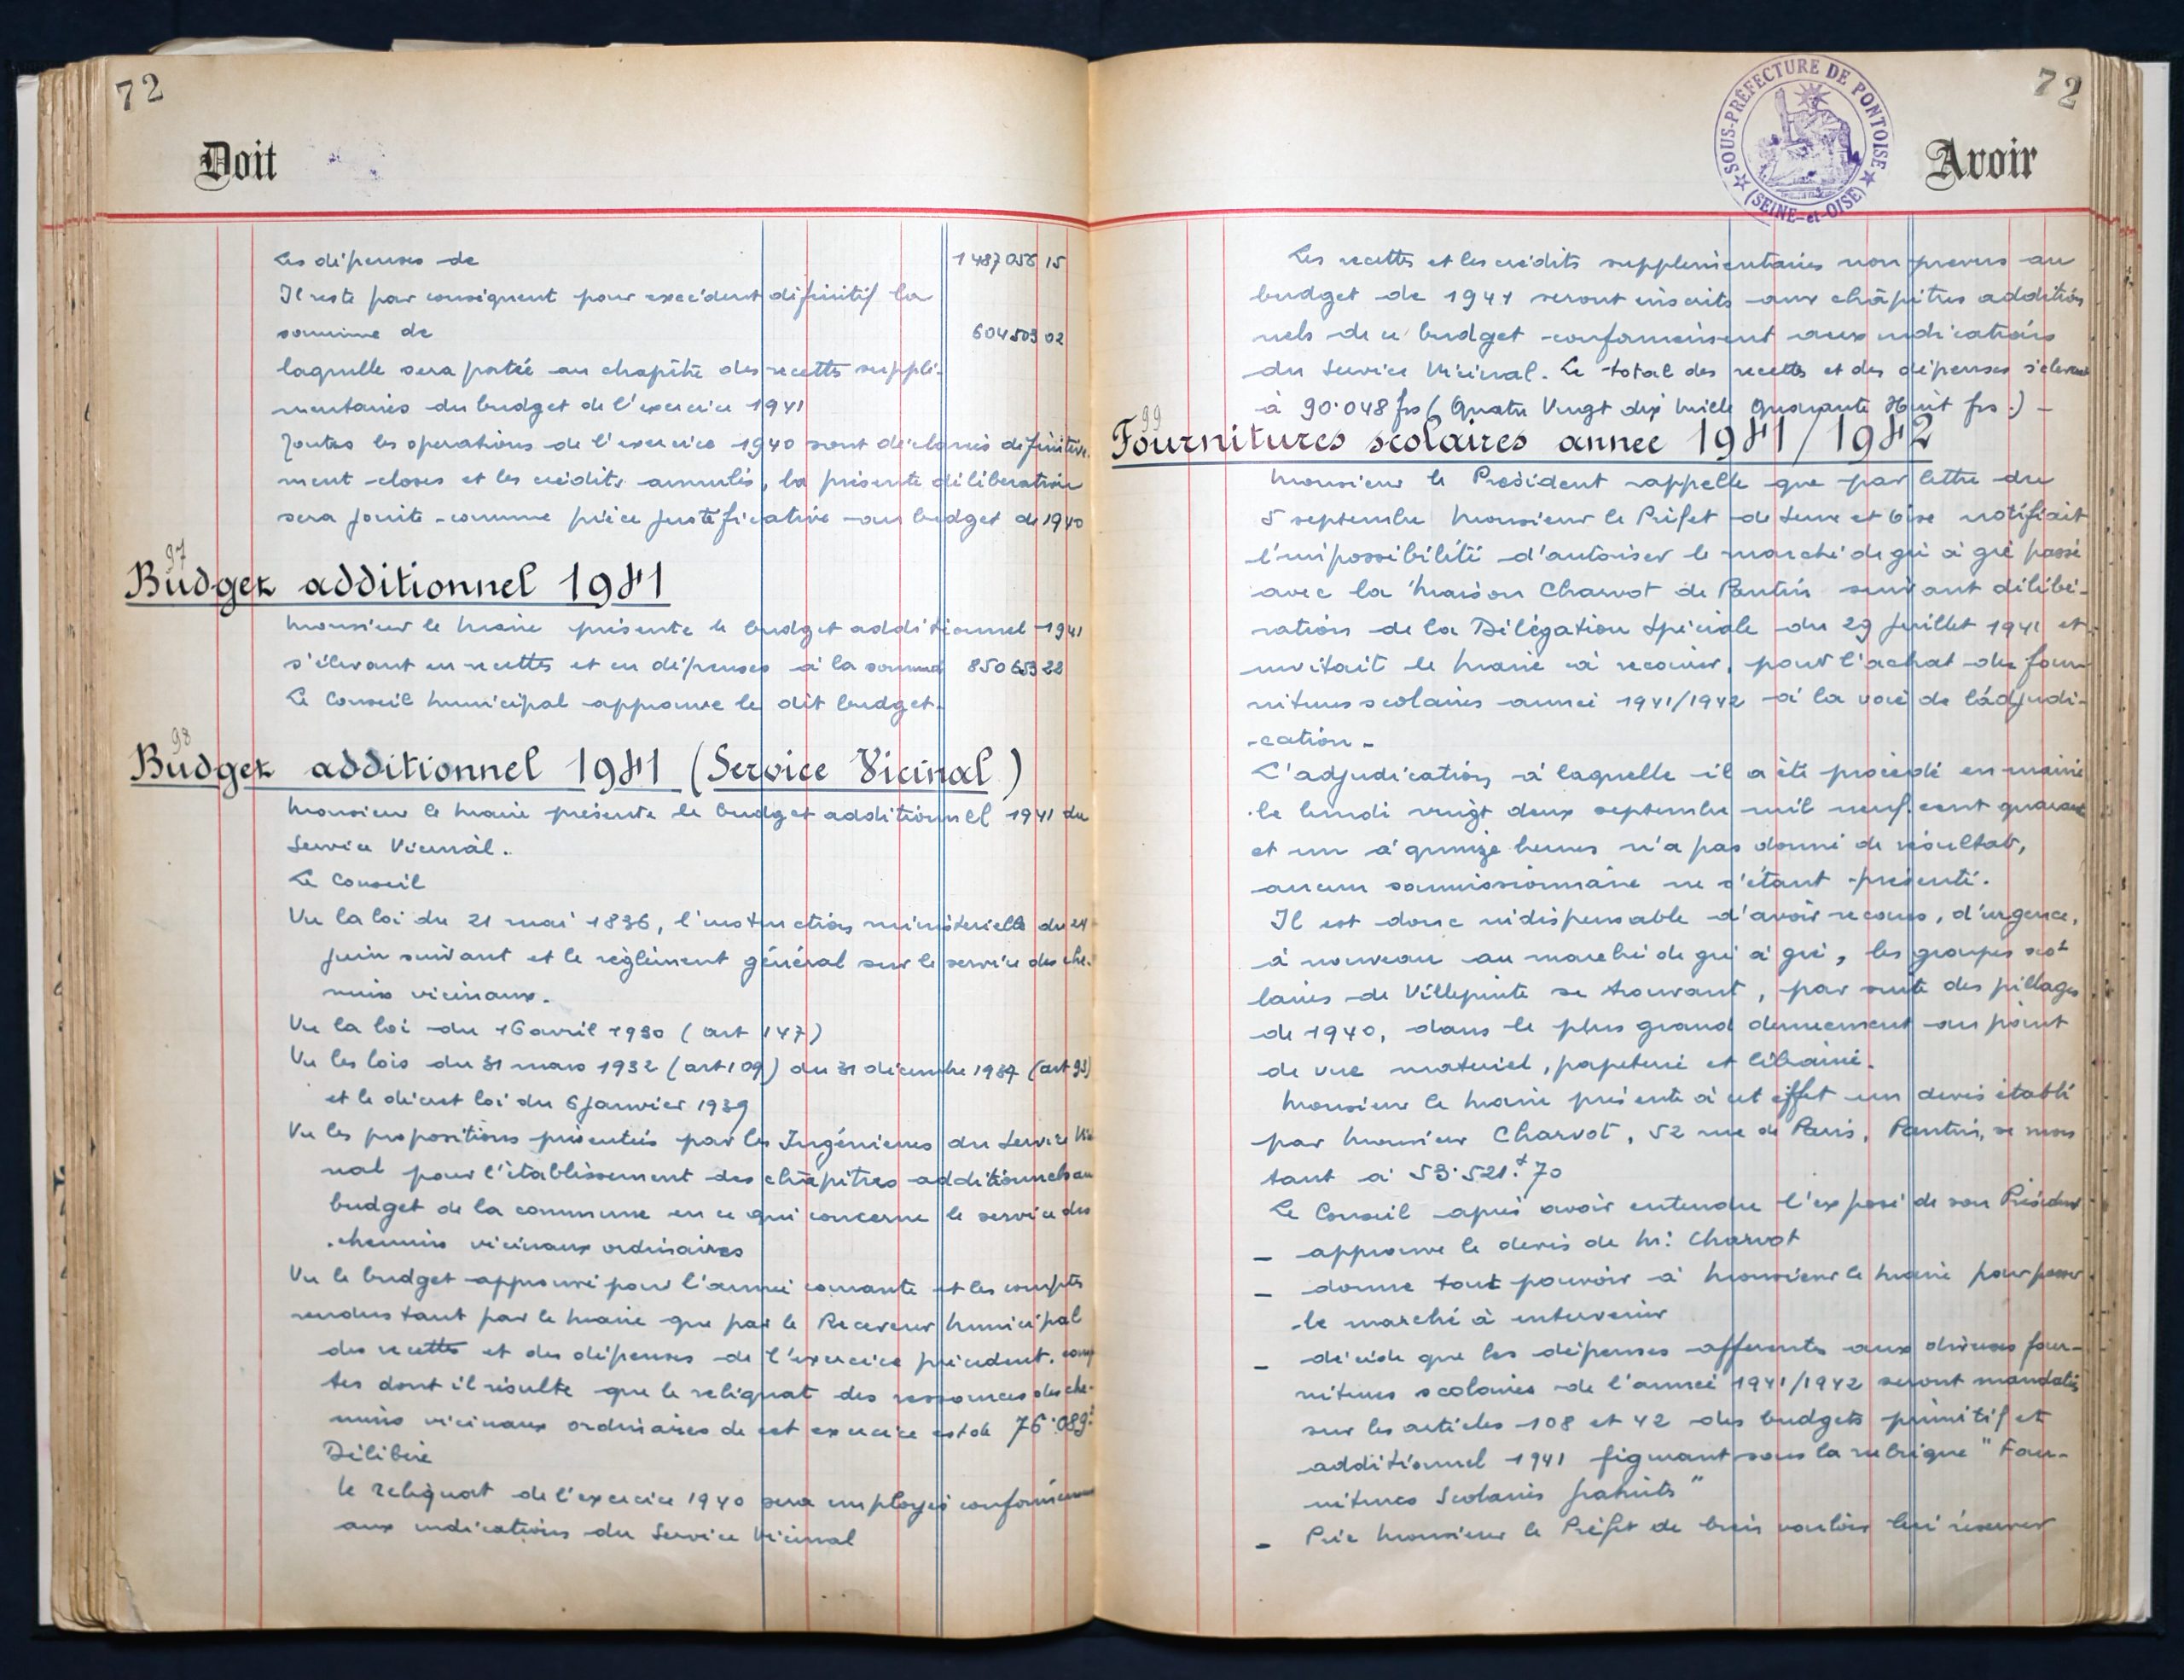 72
Doit
Les dépenses de 1487056 15
Il reste par conséquent pour exécédent définitif la
somme de 604503 02
laquelle sera portée au chapitre des recettes supplé-
mentaires du budget de l'exercice 1941
Toutes les opérations de l'exercice 1940 sont déclarées définitive-
ment closes et les crédits annulés, la présente délibération
sera jointe comme pièce justificative au budget de 1940
97
Budget additionnel 1941
Monsieur le Maire présente le budget additionnel 1941
s'élevant en recettes et en dépenses à la somme 850653 22
Le Conseil Municipal approuve le dit budget.
98
Budget additionnel 1941 (Service Vicinal)
Monsieur le Maire présente le budget additionnel 1941 du
Service Vicinal.
Le Conseil
Vu la loi du 21 mai 1836, l'instruction ministérielle du 24
juin suivant et le règlement général sur le service des che-
mins vicinaux.
Vu la loi du 16 avril 1930 (art 147)
Vu les lois du 31 mars 1932 (art 109) du 31 décembre 1937 (art 93)
et le décret loi du 6 janvier 1939
Vu les propositions présentées par les Ingénieurs du Service Vici
nal pour l'établissement des chapitres additionnels au
budget de la commune en ce qui concerne le service des
chemins vicinaux ordinaires
Vu le budget approuvé pour l'année courante et les comptes
rendus tant par le Maire que par le Receveur Municipal
des recettes et des dépenses de l'exercice précédent. comp
tes dont il résulte que le reliquat des ressources des che-
mins vicinaux ordinaires de cet exercice est de 76.089
Délibère
le reliquat de l'exercice 1940 sera employé conformément
aux indications du Service Vicinal
72
SOUS-PRÉFECTURE DE PONTOISE
(SEINE-et-OISE)
Avoir
Les recettes et les crédits supplémentaires non prévus au
budget de 1941 seront inscrits aux chapitres addition
nels de ce budget conformément aux indications
du Service Vicinal. Le total des recettes et des dépenses s'élevant
à 90.048 frs (Quatre Vingt dix mille Quarante Huit frs.) -
99
Fournitures scolaires annee 1941/1942
Monsieur le Président rappelle que par lettre du
5 septembre Monsieur le Préfet de Seine et Oise notifiait
l'impossibilité d'autoriser le marché de gré à gré passé
avec la Maison Charvot de Pantin suivant délibé-
ration de la Délégation Spéciale du 29 juillet 1941 et
invitait le Maire à recourir, pour l'achat des four
nitures scolaires année 1941/1942 à la voie de l'adjudi-
cation -
L'adjudication à laquelle il a été procédé en mairie
le lundi vingt deux septembre mil neuf cent quarante
et un à quinze heures n'a pas donné de résultat,
aucun soumissionnaire ne s'étant présenté.
Il est donc indispensable d'avoir recours, d'urgence,
à nouveau au marché de gré à gré, les groupes sco-
laires de Villepinte se trouvant, par suite des pillages
de 1940, dans le plus grand dénuement au point
de vue matériel, papeterie et librairie.
Monsieur le Maire présente à cet effet un devis établi
par Monsieur Charvot, 52 rue de Paris, Pantin, se mon
tant à 53.521.f 70
Le Conseil après avoir entendu l'exposé de son Président
- approuve le devis de M. Charvot
- donne tout pouvoir à Monsieur le Maire pour passer
le marché à intervenir
- décide que les dépenses afférentes aux diverses four-
nitures scolaires de l'année 1941/1942 seront mandatées
sur les articles 108 et 42 des budgets primitif et
additionnel 1941 figurant sous la rubrique "Four-
nitures Scolaires gratuits"
- Prie Monsieur le Préfet de bien vouloir lui réserver